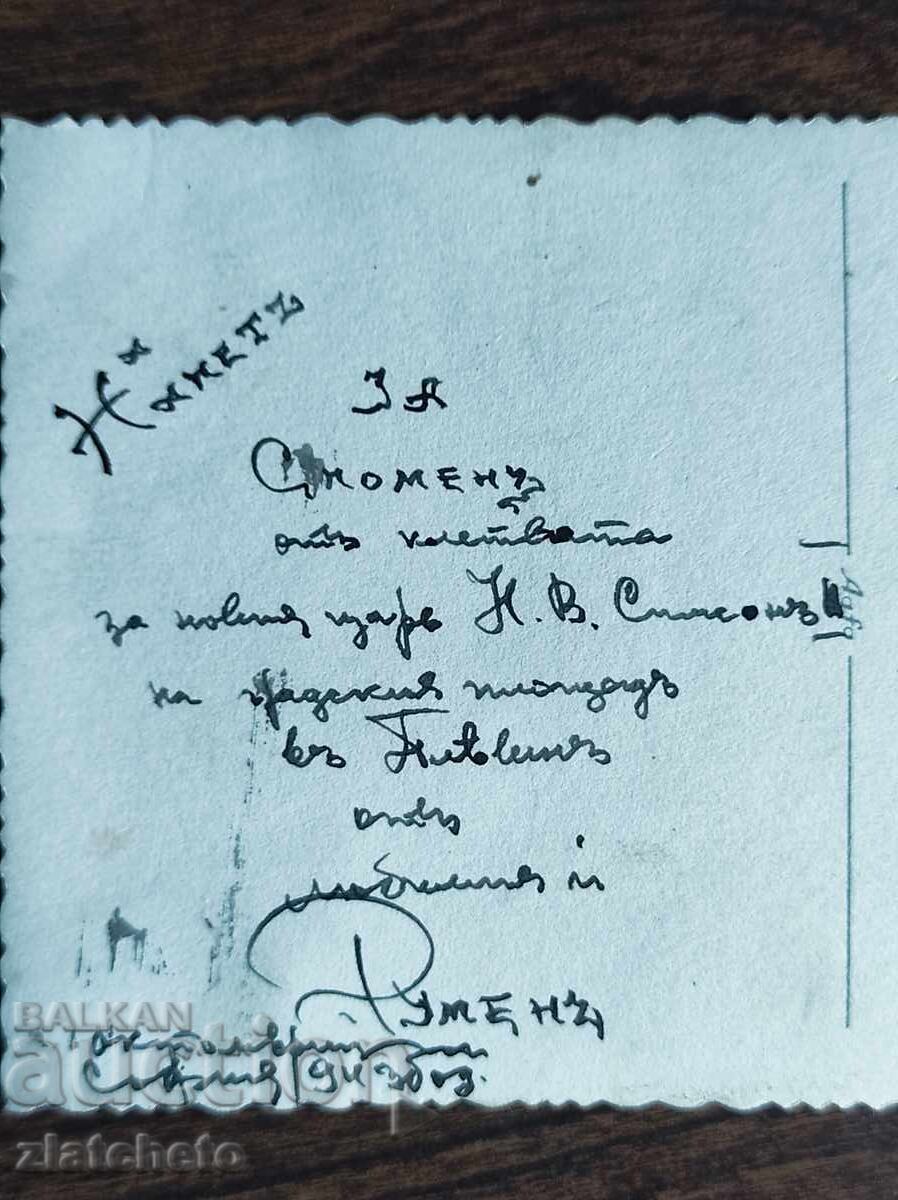 За
Споменъ
отъ клетвата
за новия царь Н. В. Симеонъ II
на градския площадъ
въ Плѣвенъ
отъ
любимия ѝ
Руменъ
София 943 год.
BALKAN
auction
zlatcheto